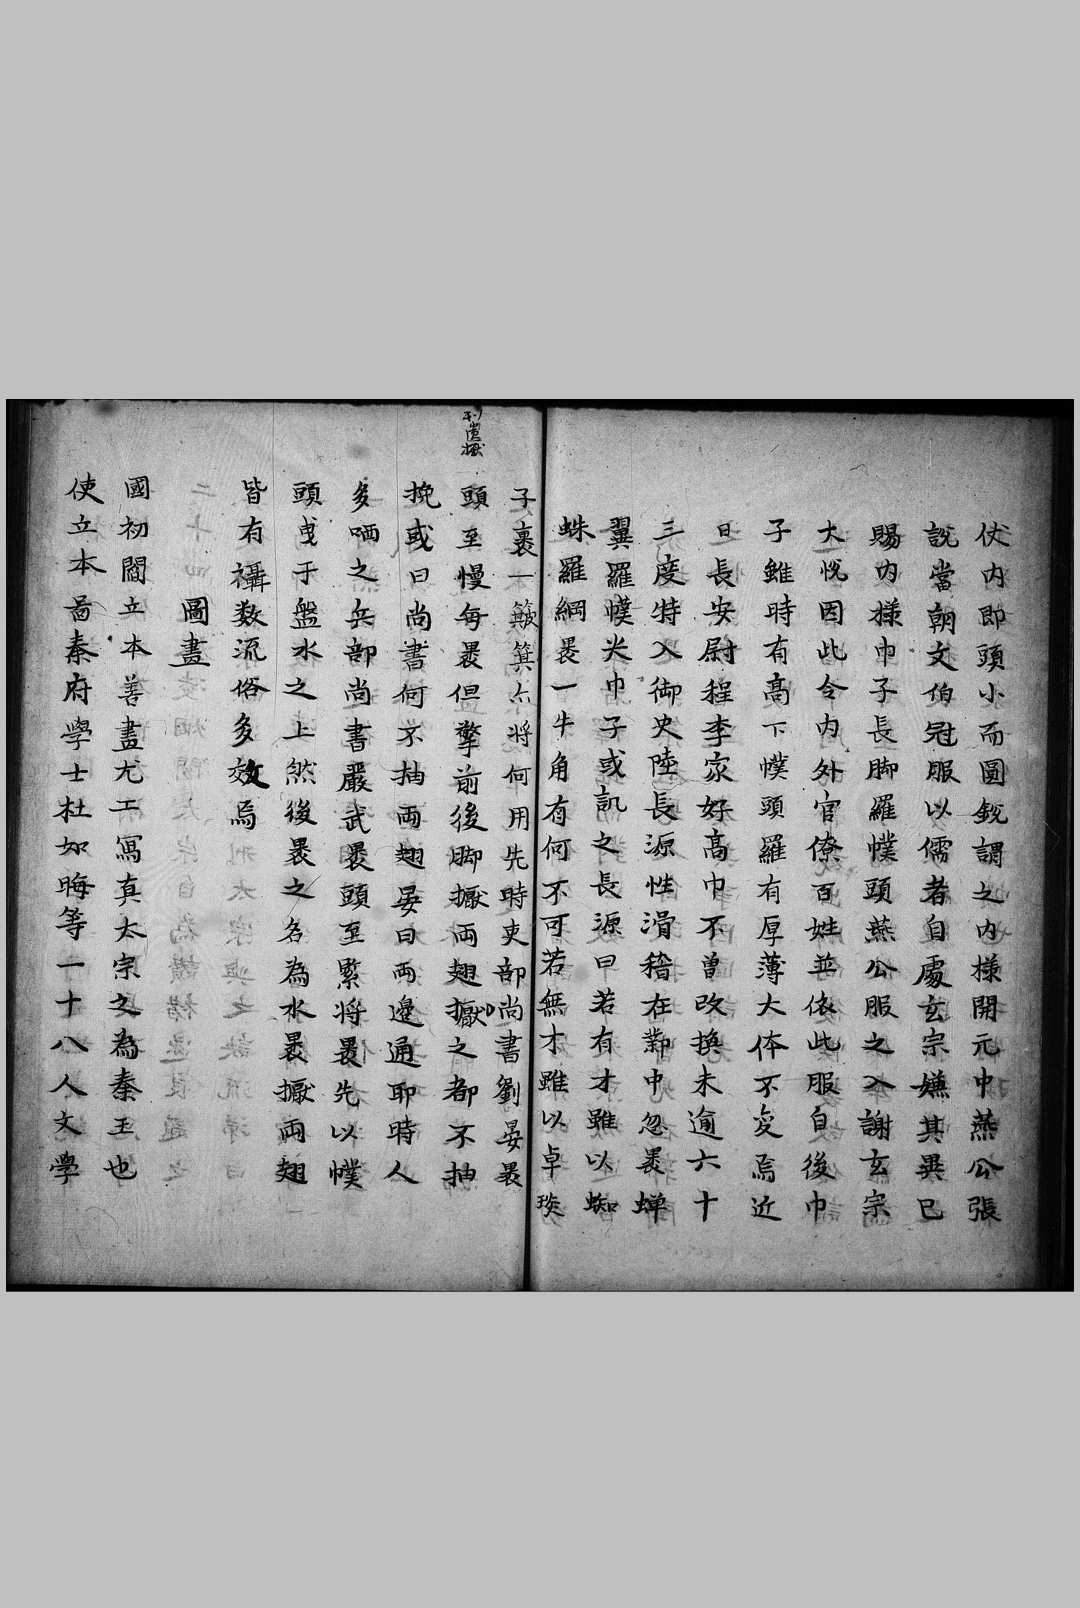 仗内即頭小而圓銳謂之内様開元中燕公張
說當朝文伯冠服以儒者自處玄宗嫌其異己
賜内様巾子長脚羅幞頭燕公服之入謝玄宗
大悅因此令内外官僚百姓並依此服自後巾
子雖時有髙下幞頭羅有厚薄大体不変焉近
日長安尉程李家好髙巾不曾改換未逾六十
三度特入御史陸長源性滑稽在鄴中忽裹蟬
翼羅幞尖巾子或訊之長源曰若有才雖以蜘
蛛羅網裹一牛角有何不可若無才雖以卓琰
子裹一簸箕亦将何用先時吏部尚書劉晏裹
頭至慢每裹但擎前後脚擫両翅擫之都不抽
挽或曰尚書何不抽両翅晏曰両邊通耶時人
多哂之兵部尚書嚴武裹頭至緊将裹先以幞
頭曵于盤水之上然後裹之名為水裹擫両翅
皆有襵数流俗多效焉
圖畫
國初閻立本善畫尤工寫真太宗之為秦王也
使立本啚秦府學士杜如晦等一十八人文學